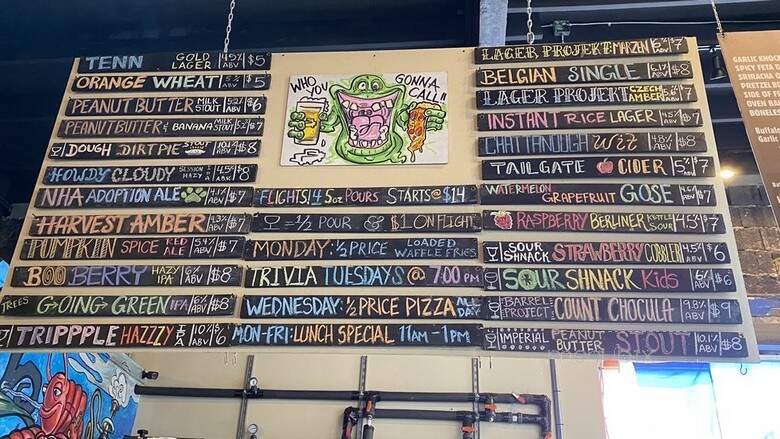 TENN GOLD LAGER 4.5% ABV $5
ORANGE WHEAT 5% ABV $5
PEANUT BUTTER MILK STOUT 5.2% ABV $6
PEANUT BUTTER & BANANA MILK STOUT 5.2% $7
DOUGH DIRT PIE STOUT 10% ABV $8
HOWDY CLOUDY SESSION HAZY 4.5% ABV $8
NHA ADOPTION ALE 4.1% ABV $7
HARVEST AMBER 4.3% ABV $7
PUMPKIN SPICE RED ALE 5.4% ABV $7
BOO BERRY HAZY IPA 6% ABV $8
TREES GOING GREEN IPA 6% ABV $8
TRIPPPLE HAZZZY IPA 10% ABV $6
WHO YOU GONNA CALL!!
FLIGHTS! 4 5oz POURS STARTS @ $14
= ½ POUR & $1.0N FLIGHT
MONDAY: ½ PRICE LOADED WAFFLE FRIES
TRIVIA TUESDAYS @ 7:00 PM
WEDNESDAY: ½ PRICE PIZZA ALL DAY
MON-FRI: LUNCH SPECIAL 11AM-1PM
LAGER PROJEKT: MARZEN $7
BELGIAN SINGLE 6.1% ABV $8
LAGER PROJEKT CZECH AMBER $7
INSTANT RICE LAGER 4.5% ABV $7
CHATTANOUGH WIT 4.8% ABV $8
TAILGATE CIDER 5% ABV $7
WATERMELON GRAPEFRUIT GOSE ABV $7
RASPBERRY BERLINER KETTLE SOUR 4.5% ABV $7
SOUR SHNACK STRAWBERRY COBBLER 4.5% ABV $6
SOUR SHNACK KIDS 6% ABV $6
BARREL PROJECT COUNT CHOCULA 9.8% ABV $9
IMPERIAL PEANUT BUTTER STOUT 10.1% ABV $8
GARLIC KNOC
SPICY FETA D
SRIRACHA R
PRETZEL BO
SIDE OF FR
OVEN
BONELE
Buffalo
Garlic